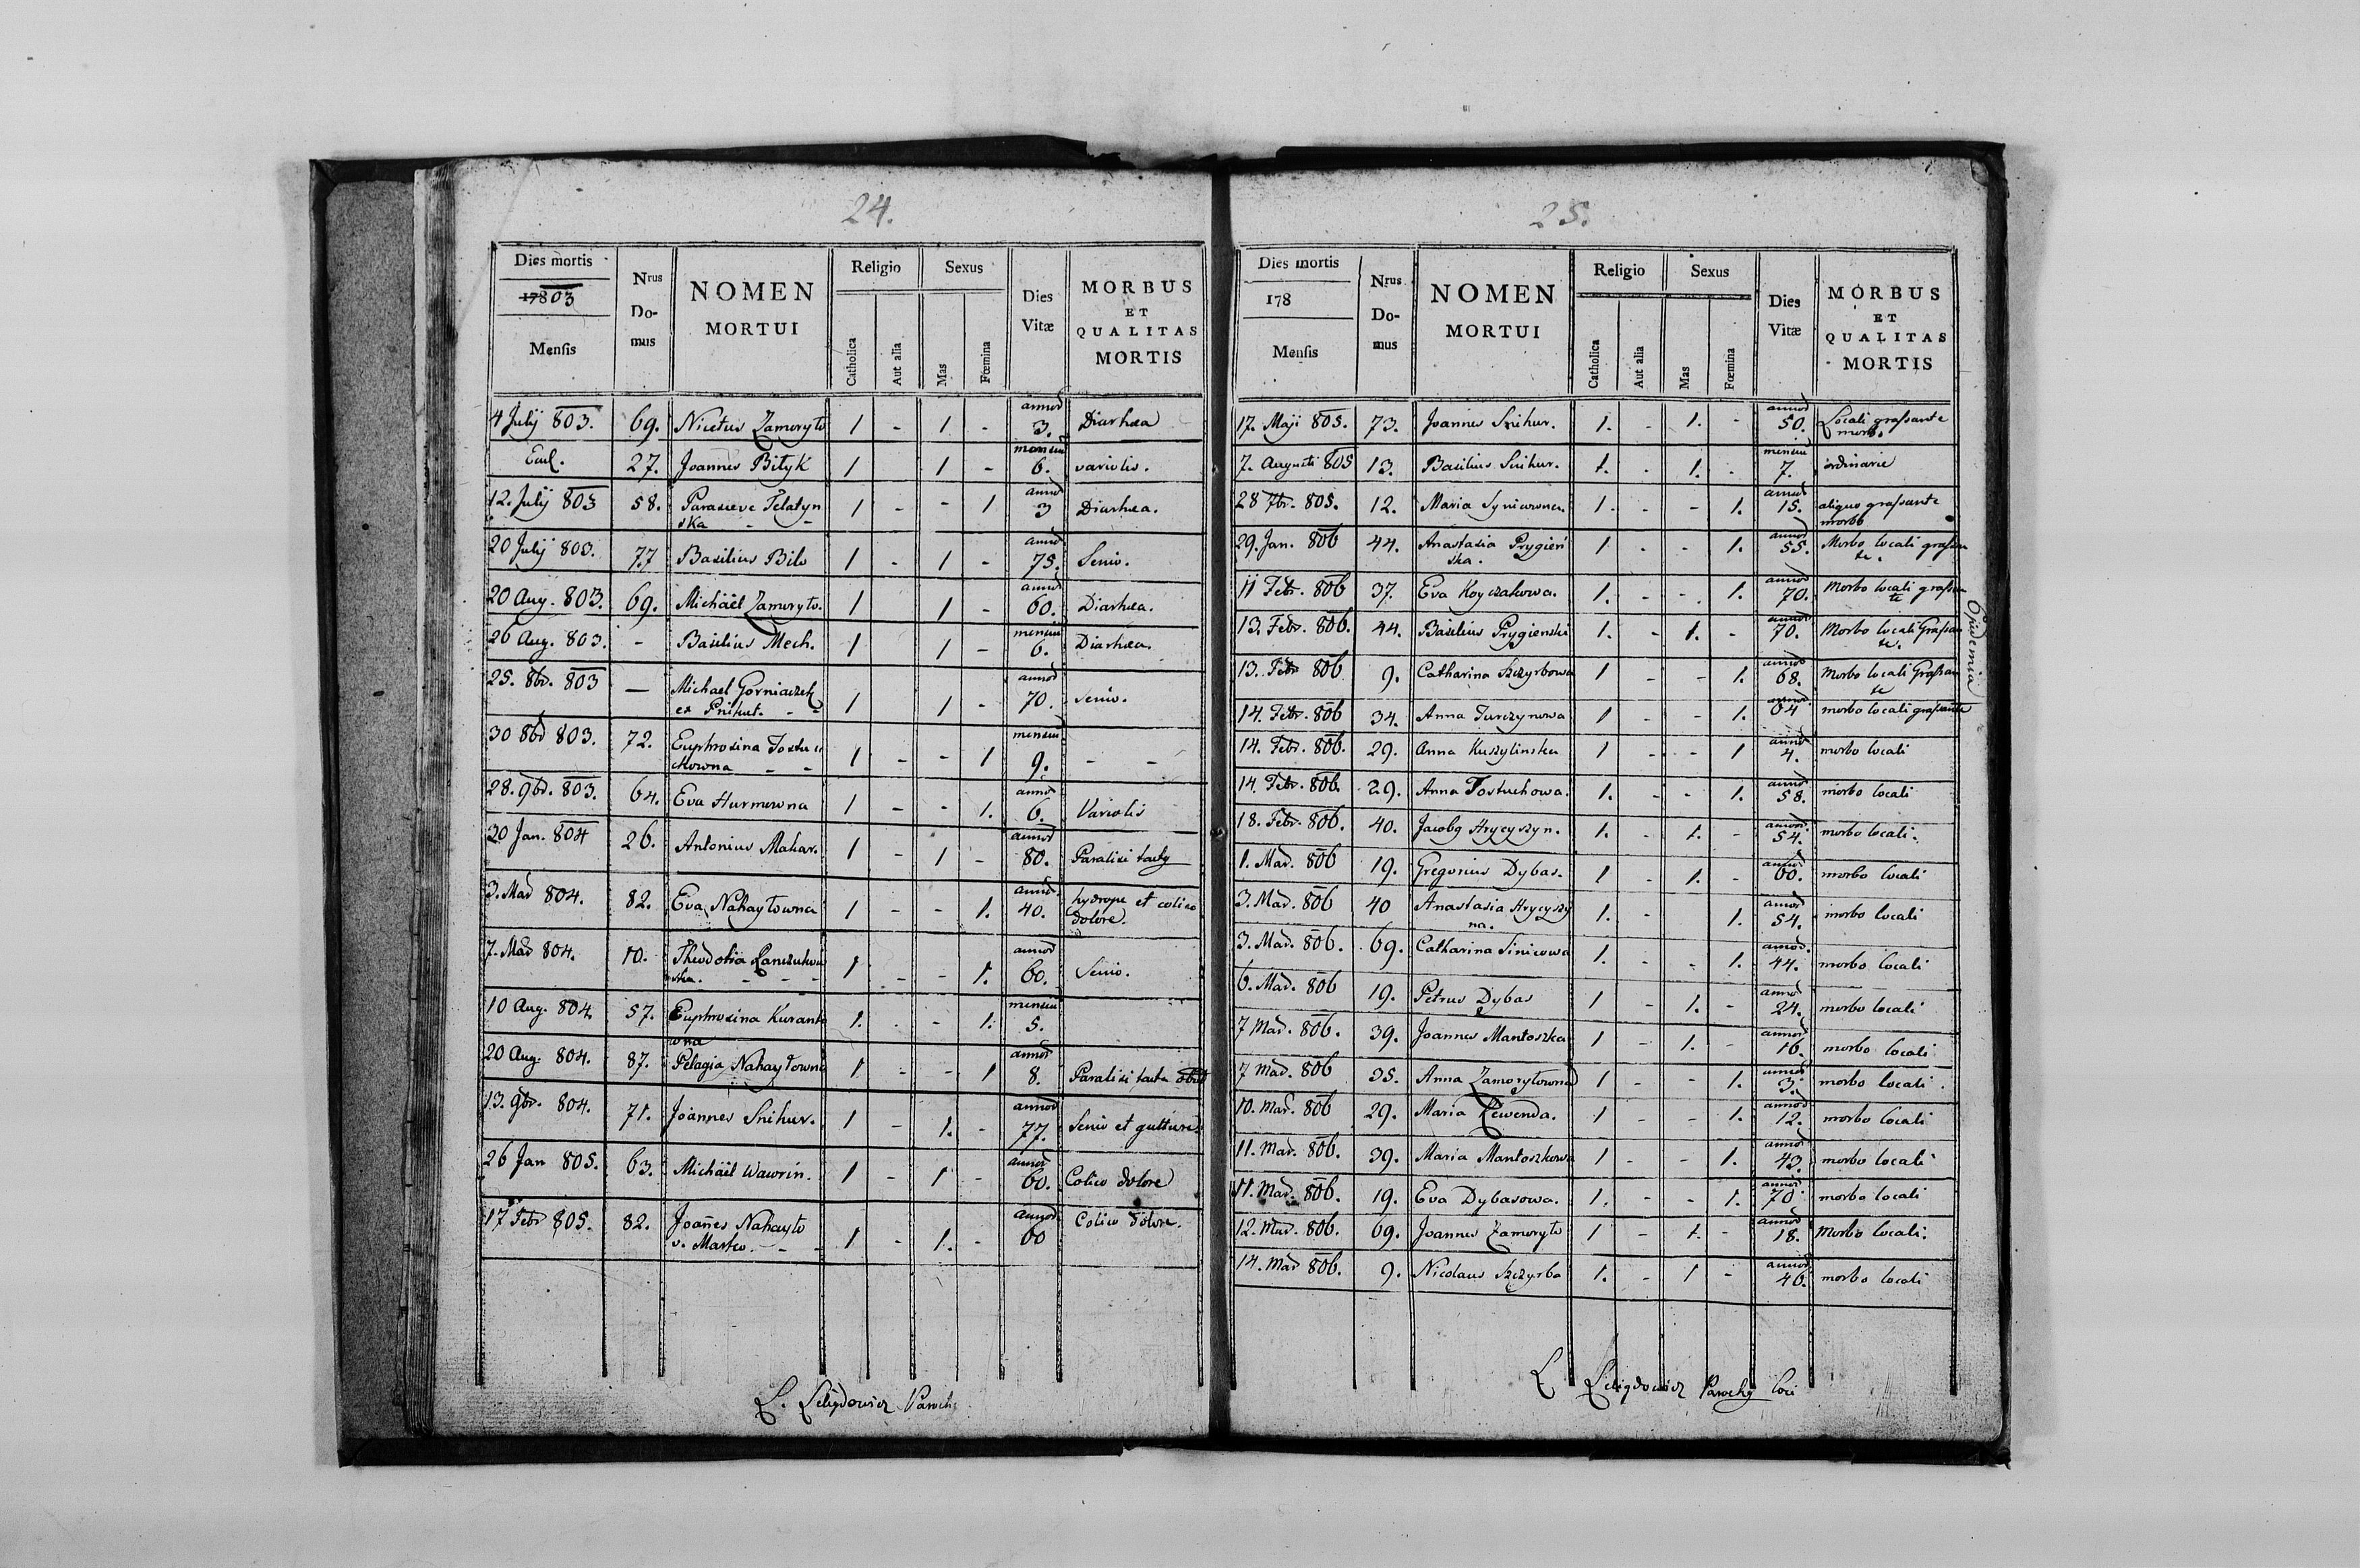 24.
Dies mortis
17803
Mensis
Nrus Do- mus
NOMEN
MORTUI
Religio
Catholica
Aut alia
Sexus
Mas
Fœmina
Dies Vitæ
MORBUS
ET
QUALITAS
MORTIS
4 Julij 803. 69. Nicetus Zamoryto 1 - 1 - annor 3. Diarhæa
Ead. 27. Joannes Bityk 1 1 - mensiu 6. variolis.
12. Julij 803 58. Parasceve Telatyn 1 - - 1 annor 3 Diarhæa.
ska - -
20 Julij 803. 77 Basilius Bilo 1 - 1 - annor 75. Senio.
20 Aug. 803. 69. Michäel Zamoryto. 1 1 - annor 60. Diarhæa.
26 Aug. 803. - Basilius Mech. 1 1 - mensiu 6. Diarhæa.
25. 8br. 803 — Michael Gorniaczek
ex Prikut. - - 1 1 - annor 70. senio.
30 8br 803. 72. Euphrosina Tostu
chowna - - 1 - - 1 mensiu 9. - -
28. 9br. 803. 64. Eva Hurmowna 1 - - 1. annor 6. Variolis
20 Jan. 804 26. Antonius Mahar. 1 - 1 - annor 80. Paralisi tacty
3. Mar 804. 82. Eva Nahaytowna 1 - - 1. annor 40. hydrope et colico
dolore.
7. Mar 804. 10. Theodosia
ska. - - - 1 - - 1. annor 60. Senio.
10 Aug. 804. 57. Euphrosina Kuranto 1. - - 1. mensiu 5.
wna
20 Aug. 804. 87. Pelagia Nahaytowna 1 - - 1 annor 8. Paralisi tacta obiit
13. 9br. 804. 71. Joannes Snihur. 1 - 1. - annor 77. Senio et gutture.
26 Jan 805. 63. Michäel Wawrin. 1 - 1 - annor 60. Colico dolore
17 Febr 805. 82. Joañes Nahayto 1 - 1. - annor 60 Colico dolore.
v. Martco. - -
L. Leligdowicz Paroch
25.
Dies mortis
178
Mensis
Nrus Do- mus
NOMEN
MORTUI
Religio
Catholica
Aut alia
Sexus
Mas
Fœmina
Dies Vitæ
MORBUS
ET
QUALITAS
MORTIS
17. Maji 805. 73. Joannes Snihur. 1. - 1. - annor 50. Locali grassante
morb.
7. Augusti 805 13. Basilius Snihur. 1. - 1. - mensiu 7. ordinarie
28 7br. 805. 12. Maria Synicowna. 1. - - 1. annor 15. aliquo grassante
morbo
29. Jan. 806 44. Anastasia Prygień 1 - - 1. annor 55. Morbo locali grassan
ska. te.
11 Febr. 806 37. Eva Koyczakowa. 1. - - 1. annor 70. Morbo locali grassan
te
13. Febr. 806. 44. Basilius Prygienski 1. - 1. - annor 70. Morbo locali Grassan
te.
13. Febr 806 9. Catharina Szczyrbowa 1 - - 1. annor 68. Morbo locali Grassan
te
14. Febr. 806 34. Anna Turczynowa 1 - - 1. annor 64 morbo locali grassante
14. Febr. 806. 29. Anna Kuszylinska 1 - - 1 annor 4. morbo locali
14. Febr. 806. 29. Anna Tostuchowa. 1. - - 1. annor 58. morbo locali
18. Febr. 806. 40. Jacoby Hrycyszyn. 1. - 1. - annor. 54. morbo locali.
1. Mar. 806 19. Gregorius Dybas. 1 - 1. - annor 60. morbo locali
3. Mar. 806 40 Anastasia Hrycyszy 1. - 1. annor 54. morbo locali
na.
3. Mar. 806. 69. Catharina Sinicowa 1. - - 1. annor. 44. morbo locali
6. Mar. 806 19. Petrus Dybas 1 - 1. - annor 24. morbo locali
7 Mar. 806. 39. Joannes Mantoszka 1 - 1. - annor 16. morbo locali
7 Mar. 806 35. Anna Zamorytowna 1 - - 1. annor 3. morbo locali.
10. Mar. 806 29. Maria Lewenda. 1 - - 1. annor 12. morbo locali
11. Mar. 806. 39. Maria Mantoszkowa 1 - - 1. annor 43. morbo locali
11. Mar. 806. 19. Eva Dybasowa. 1. - - 1. annor 70. morbo locali
12. Mar. 806. 69. Joannes Zamoryto 1 - 1. - annor 18. Morbo locali.
14. Mar 806. 9. Nicolaus Szczyrba 1. - 1 - annor 46. morbo locali
Epidemia
L Leligdowicz Parochy loci